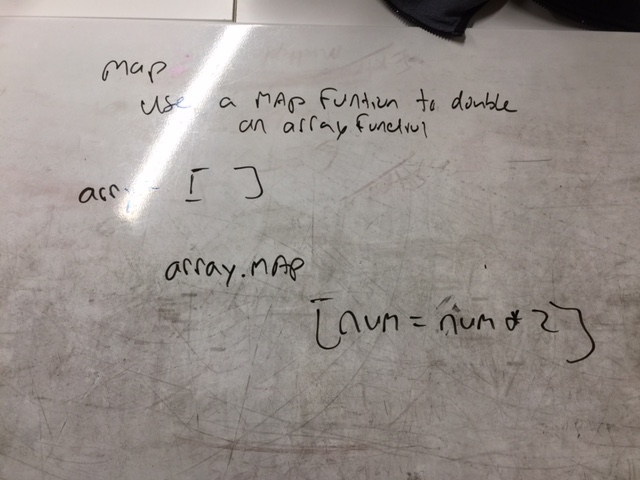 map
Use a MAP Function to double
an array function
arr [ ]
array.MAP
[num = num * 2}